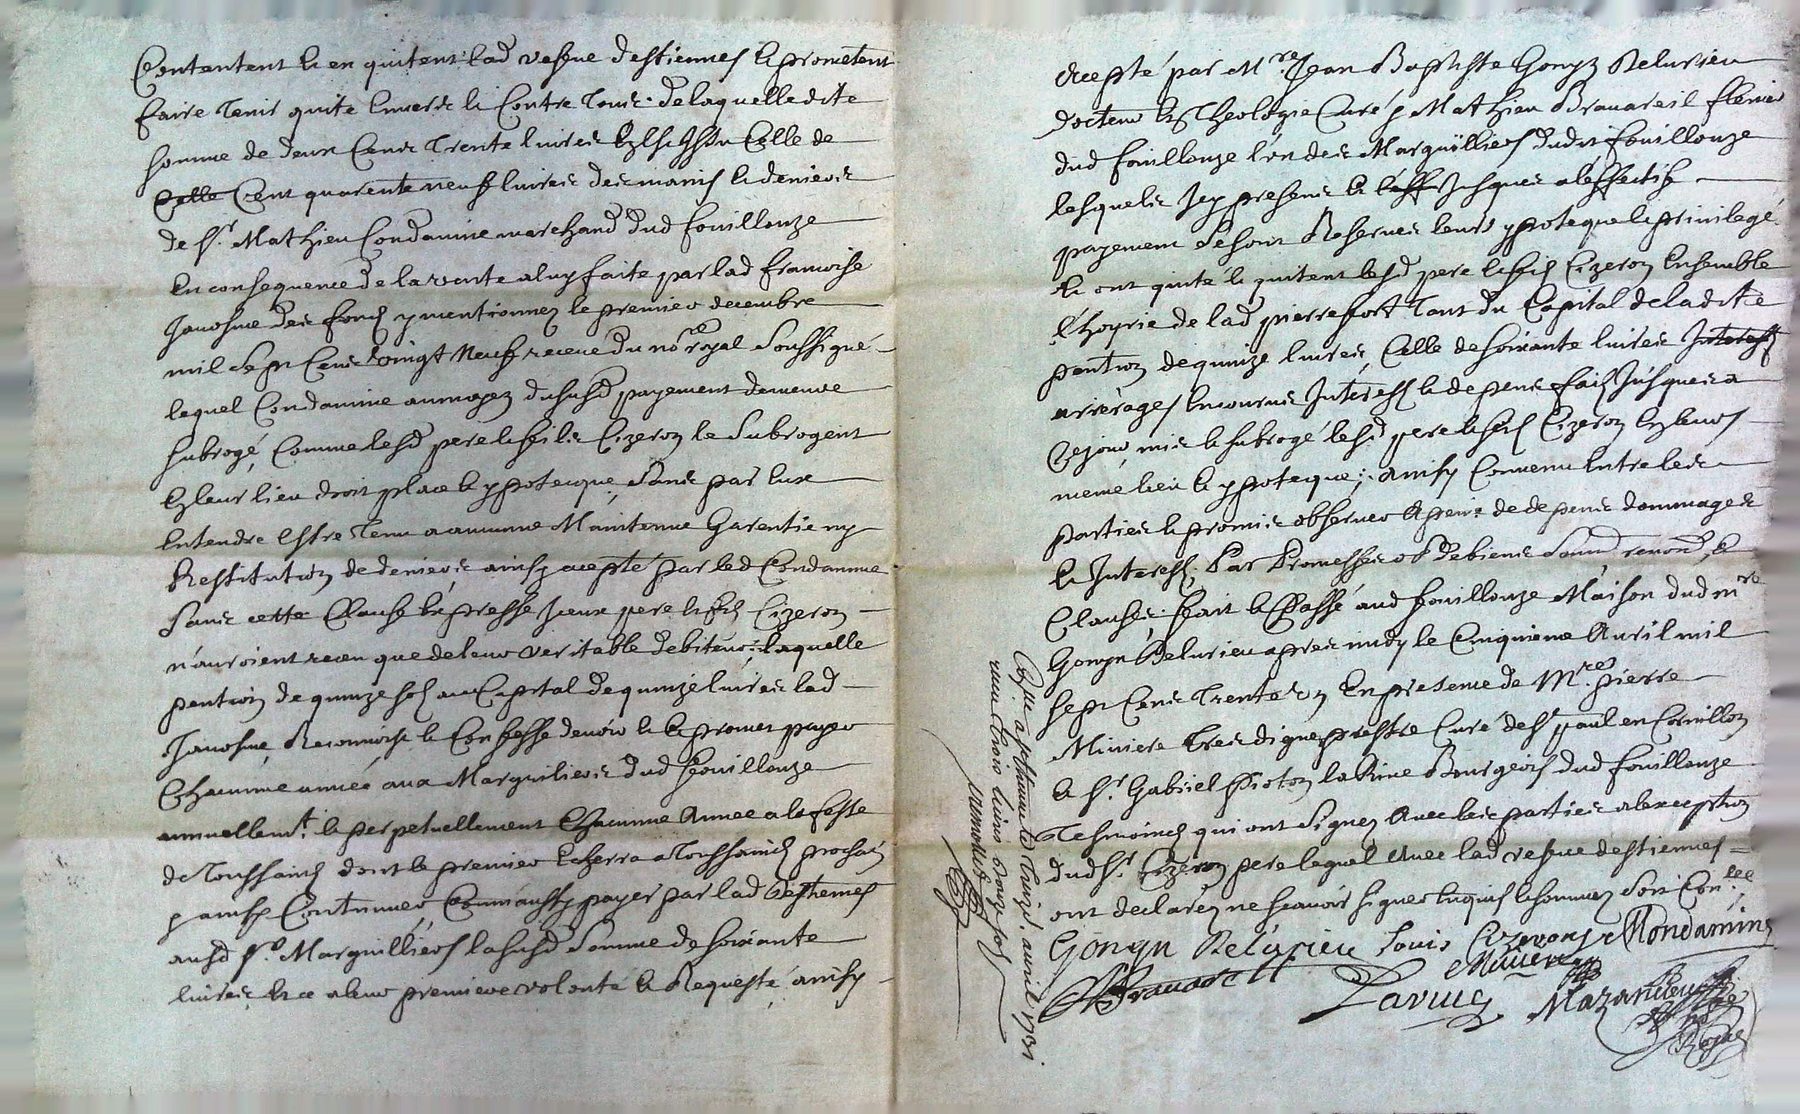 Contentent & en quitent lad vefve destiennes & prometent
faire tenir quite Envers & Contre tous. de laquelle dite
somme de deux Cens Trente livres Celle de
Celle Cent quarente neuf livres des mains & deniers
de Sr. Mathieu Condamine marchand dud fouillouze
En consequence de la vente a luy faite par lad francoise
Janosme des fonds y mentionnez le premier decembre
mil sept Cens vingt Neuf receue du nore royal soussigné
lequel Condamine au moyen du susd payement demeure
subrogé, Comme lesd pere & fils Cizeron le subrogent
En leur lieu droit place & ypoteque, sans par eux
Entendre Estre tenu a aucune Maintenue Garentie ny
Restitution de deniers ainsy acepté par led Condamine
sans cette Clause Expresse Iceux pere & fils Cizeron
n'auroient receu que de leur veritable debiteur; laquelle
pention de quinze sols au Capital de quinze livres lad
Janosme, Reconnoist & Confesse devoir & promet payer
Chacune année aux Marguiliers dud fouillouze
annuellemt. & perpetuellement Chacune Année a la feste
de Toussaincts dont le premier Echerra a Toussaincts prochain
& ainsy Continuer, Comm'aussy payer par lad destiennes
ausd Srs. Marguilliers la susd somme de soixante
livres & ce a leur premiere volonté & Requeste, ainsy
Acepté par Mre. Jean Baptiste Gonyn Relurieu
docteur En Theologie Curé & Mathieu Bravareil
dud fouillouze l'un des Marguilliers dudit fouillouze
lesquels Icy presens & Jusques a l'effectif
payement se sont Reservés leurs ypoteque & privilegé
& ont quité & quitent lesd pere & fils Cizeron Ensemble
l'hoyrie de lad pierrefort tant du Capital de ladite
pention de quinze livres, Celle de soixante livres Interests
arrérages Encourus Interests & depens faits Jusques a
Ce jour, mis & subrogé lesd pere & fils Cizeron En leurs
meme lieu & ypoteque; ainsy Convenu Entre les
parties & promis observer a peine de depens dommages
& Interests; Par Promesses ob de biens soum renond, &
Clauses; fait & Passé aud fouillouze Maison dud mre
Gonyn Relurieu apres midy le Cinquieme Avril mil
sept Cens Trente un En presence de Mre. pierre
Miniere tres digne prestre Curé de St paul en Cornillon
& Sr. Gabriel Bourgeois dud fouillouze
Tesmoincts qui ont signez Avec les parties a l'exception
dud Sr. Cizeron pere lequel Avec lad vefve destiennes
ont declarez ne scavoir signer Enquis & sommez
Gonyn Relurieu Louis Cizeron Condamine
Bravareil Miniere
Mazandieu
Royal
a st Etienne le treize avril 1731
receu trois livres douze sols